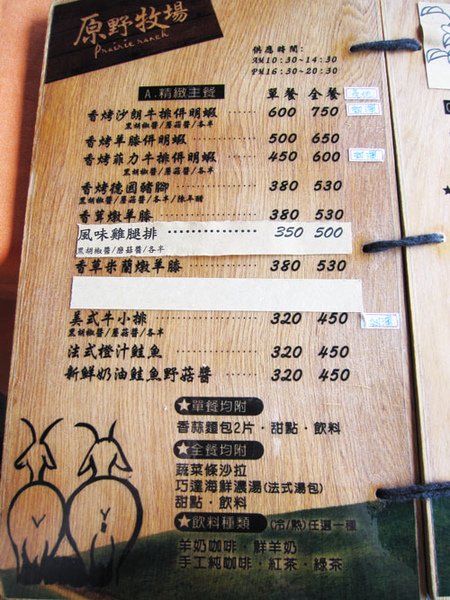 原野牧場
Prairie ranch
供應時間:
AM10:30~14:30
PM16:30~20:30
A.精緻主餐 單餐 全餐
香烤沙朗牛排併明蝦 600 750
黑胡椒醬/蘑菇醬/各半
香烤羊膝併明蝦 500 650
香烤菲力牛排併明蝦 450 600
黑胡椒醬/蘑菇醬/各半
香烤德國豬腳 380 530
黑胡椒醬/蘑菇醬/各半/陳年醋
香草燉羊膝 380 530
風味雞腿排 350 500
黑胡椒醬/蘑菇醬/各半
香草米蘭燉羊膝 380 530
美式牛小排 320 450
黑胡椒醬/蘑菇醬/各半
法式橙汁鮭魚 320 450
新鮮奶油鮭魚野菇醬 320 450
★單餐均附
香蒜麵包2片・甜點・飲料
★全餐均附
蔬菜條沙拉
巧達海鮮濃湯(法式湯包)
甜點・飲料
★飲料種類 (冷/熱)任選一種
羊奶咖啡・鮮羊奶
手工純咖啡・紅茶・綠茶